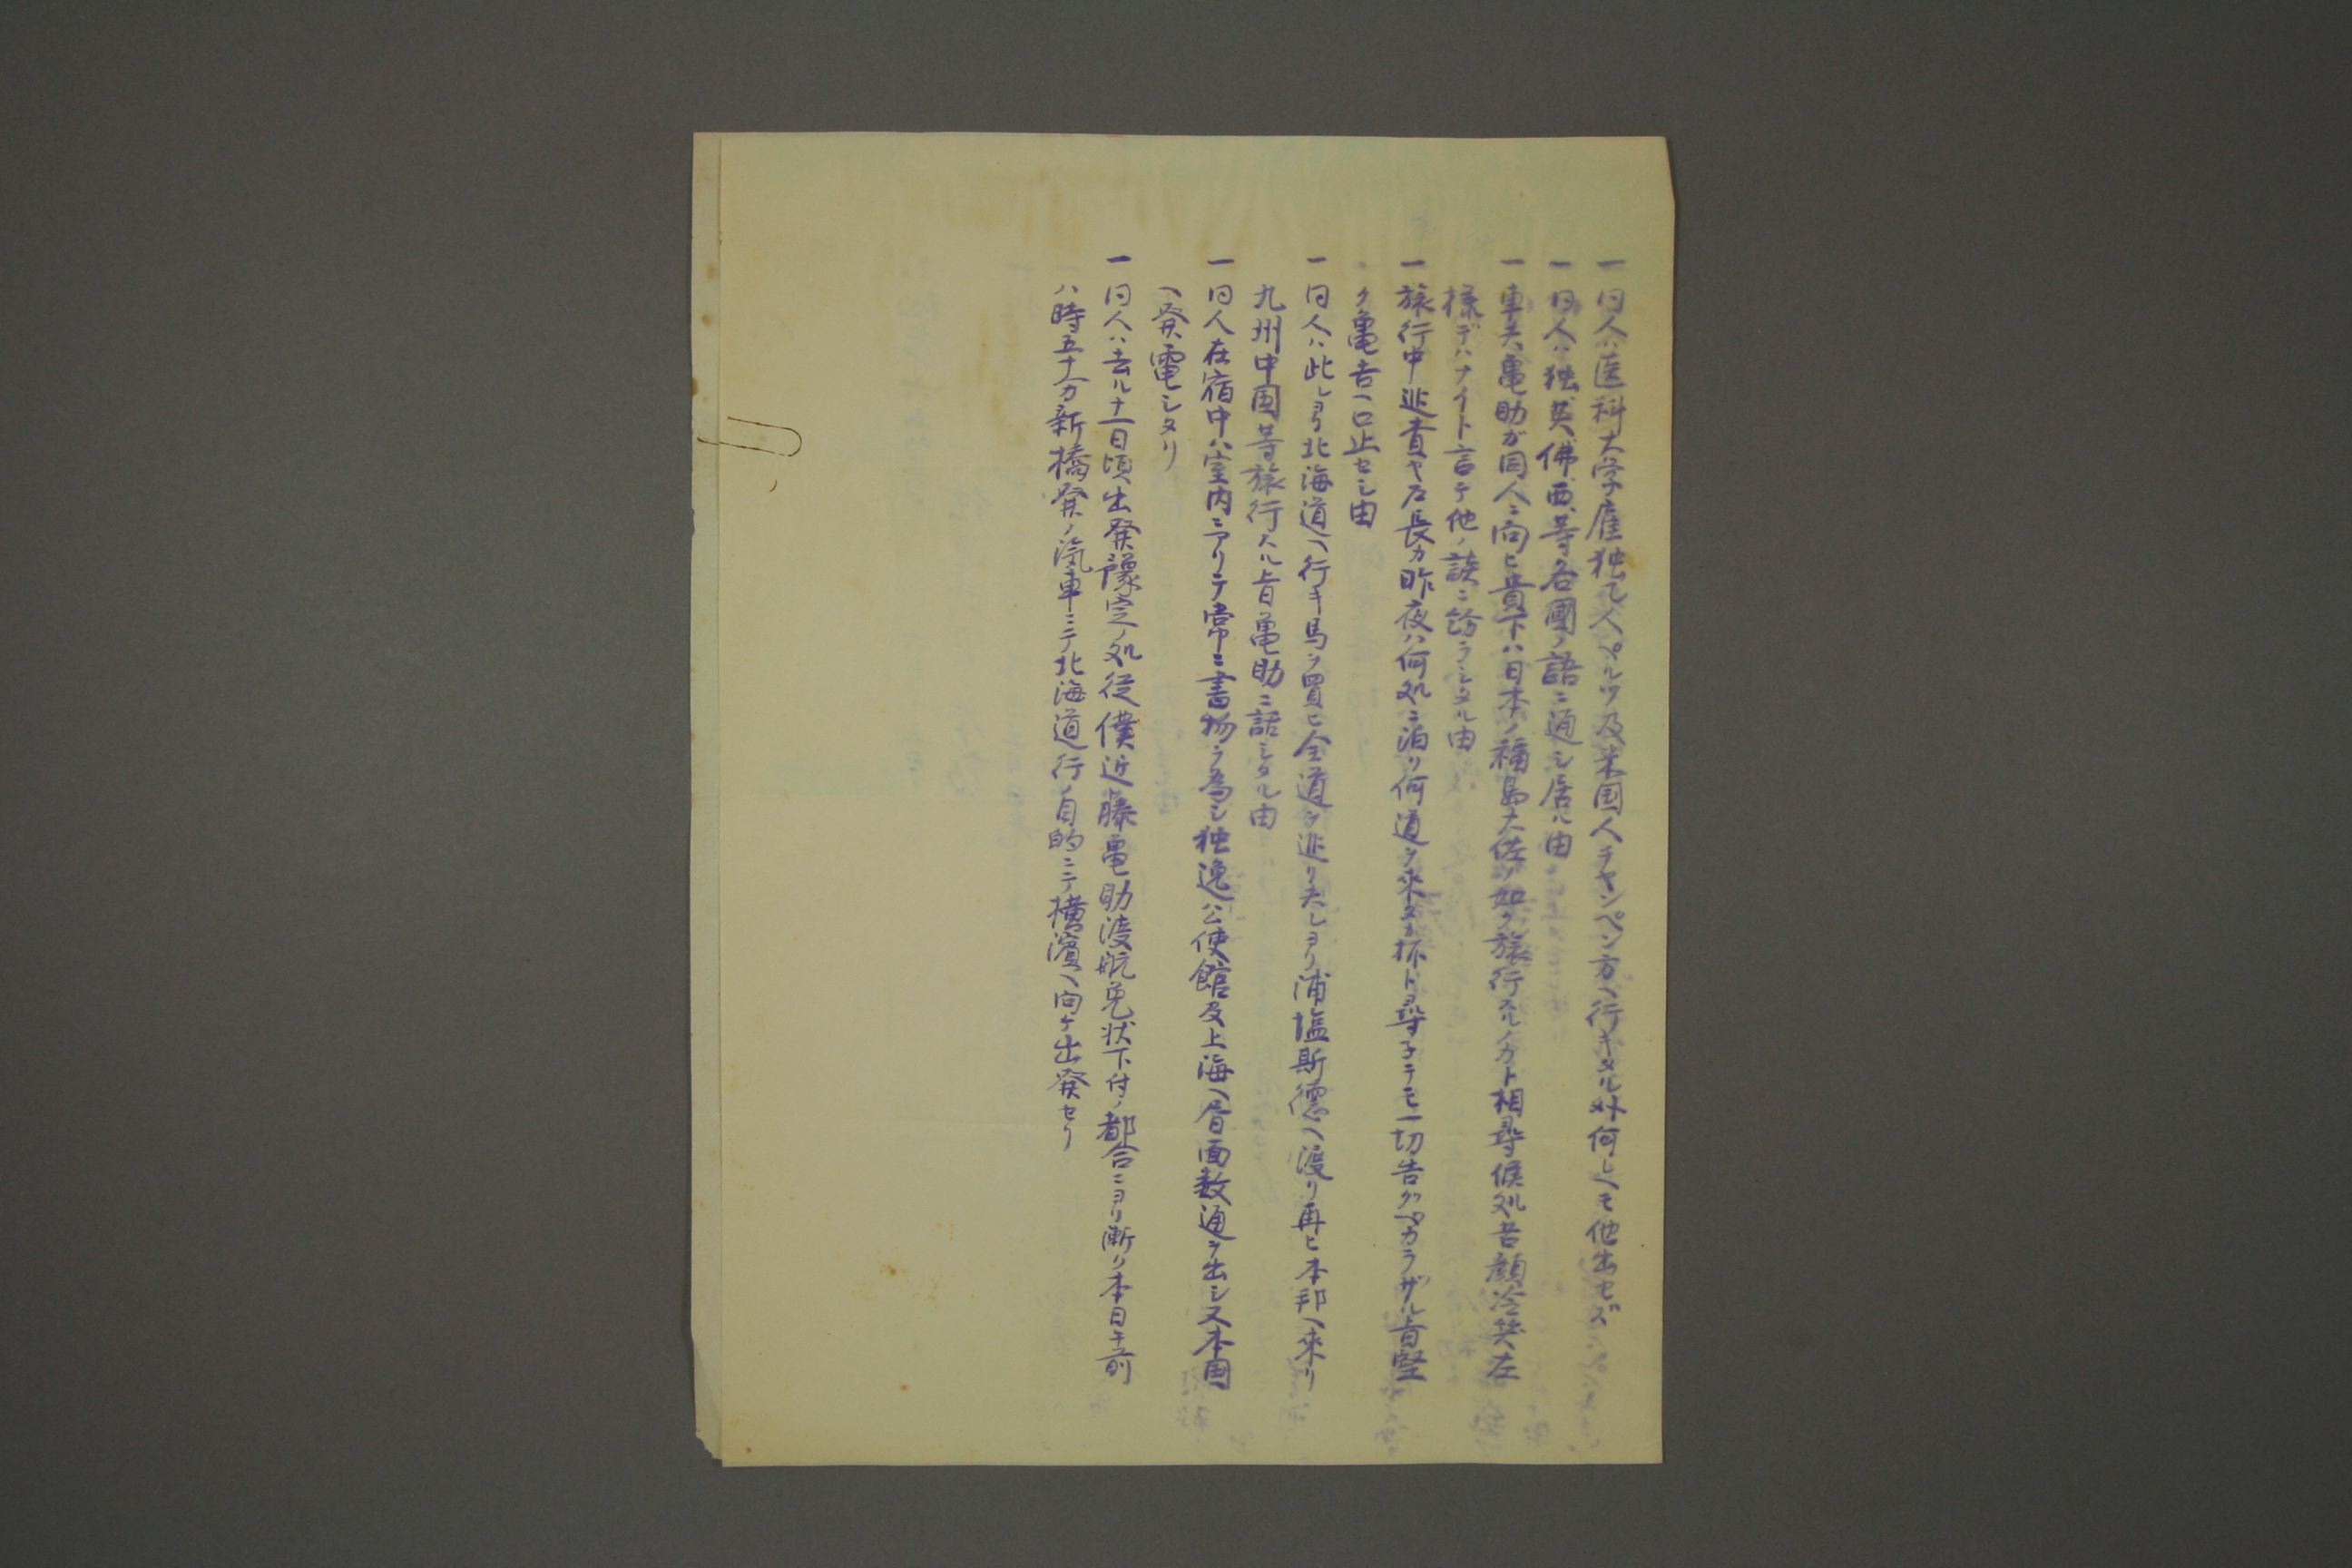 一 同人ハ医科大学雇独乙人ベルツ及米国人チヤンペン方ヘ行キタル外何レヘモ他出セズ
一 同人ハ独英佛西等各國ノ語ニ通シ居ル由
一 車夫亀助ガ同人ニ向ヒ貴下ハ日本ノ福島大佐ノ如ク旅行スルノカト相尋候処苦顔冷笑左
様デハナイト言テ他ノ談ニ紛ラシタル由
一 旅行中巡査ヤ戸長カ昨夜ハ何処ニ泊リ何道ヲ來タカ抔ト尋子テモ一切告グベカラザル旨堅
ク亀吉ヘ口止セシ由
一 同人ハ此レヨリ北海道ヘ行キ馬ヲ買ヒ全道ヲ巡リ夫レヨリ浦塩斯德ヘ渡リ再ヒ本邦ヘ來リ
九州中国等旅行スル旨亀助ニ話シタル由
一 同人在宿中ハ室内ニアリテ常ニ書物ヲ為シ独逸公使館及上海ヘ書面数通ヲ出シ又本国
ヘ発電シタリ
一 同人ハ去ル十一日頃出発豫定ノ処従僕近藤亀助渡航免状下付ノ都合ニヨリ漸ク本日午前
八時五十分新橋発ノ汽車ニテ北海道行ノ目的ニテ横濱ヘ向ケ出発セリ